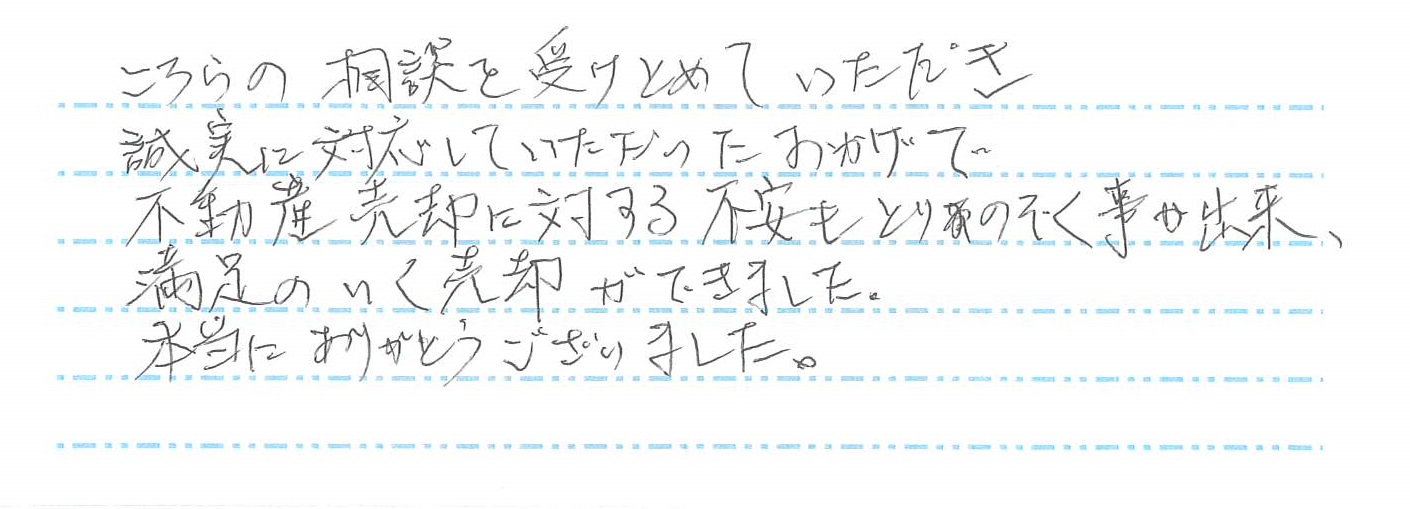 こちらの相談を受けとめていただき
誠実に対応していただいたおかげで
不動産売却に対する不安もとりのぞく事が出来、
満足のいく売却ができました。
本当にありがとうございました。